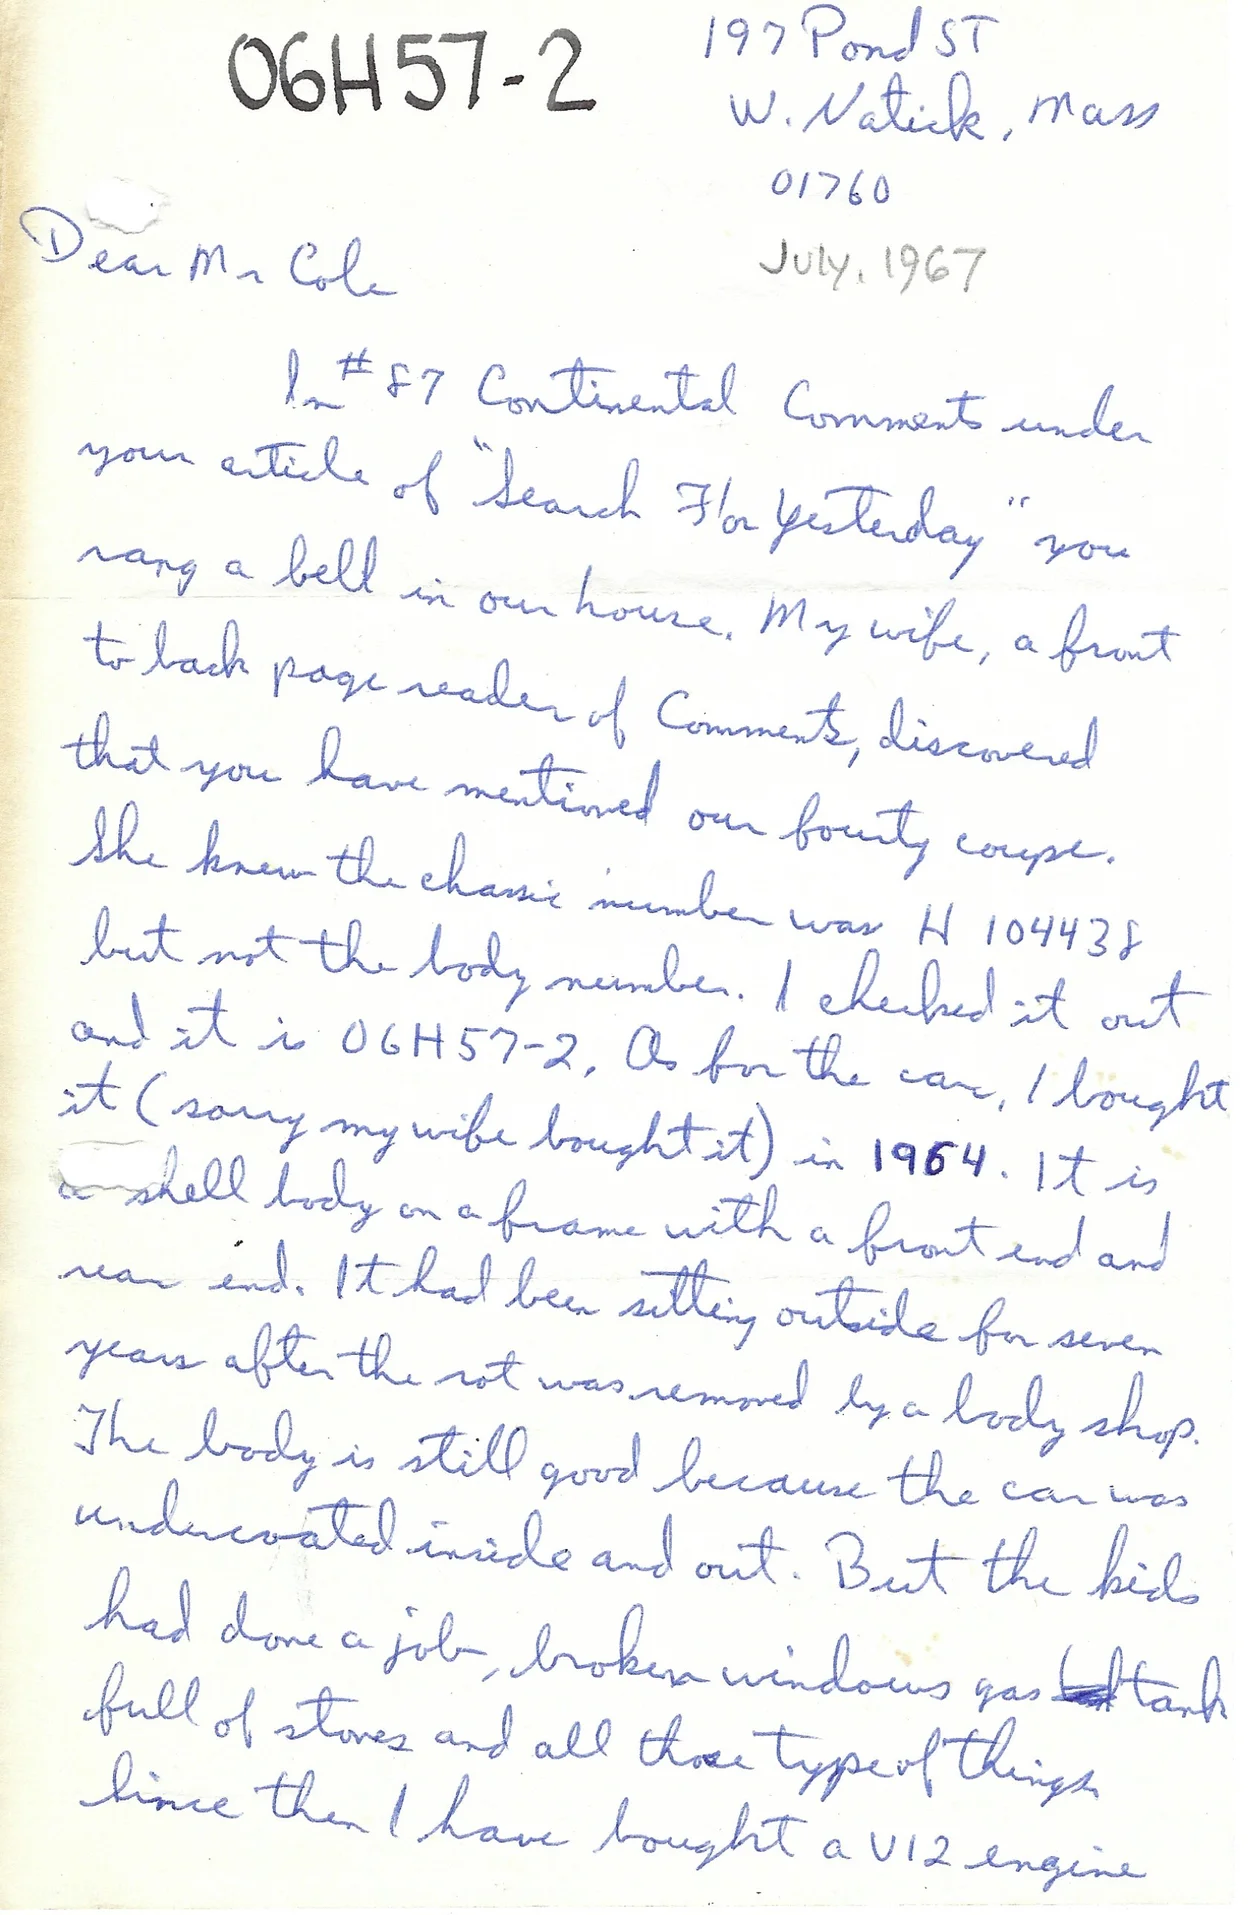 06H57-2
197 Pond ST
W. Natick, Mass
01760
July, 1967
Dear Mr Cole
In #87 Continental Comments under
your article of "Search For Yesterday" you
rang a bell in our house. My wife, a front
to back page reader of Comments, discovered
that you have mentioned our fourty coupe.
She knew the chassie number was H 104438
but not the body number. I checked it out
and it is 06H57-2. As for the car, I bought
it (sorry my wife bought it) in 1964. It is
a shell body on a frame with a front end and
rear end. It had been sitting outside for seven
years after the rot was removed by a body shop.
The body is still good because the car was
undercoated inside and out. But the kids
had done a job, broken windows gas tank
full of stones and all those type of things
Since then I have bought a V12 engine